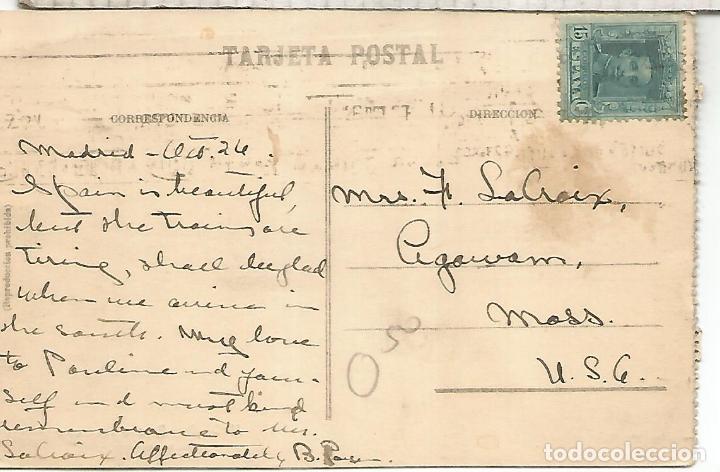 TARJETA POSTAL
CORRESPONDENCIA
DIRECCION
15 C ESPAÑA
(Reproduccion prohibida)
Madrid - Oct. 26.
Spain is beautiful,
but the trains are
tiring, shall be glad
when we arrive in
the south. My love
to Pauline and your-
self and most kind
remembrance to Mr.
LaCroix. Affectionately B.
Mrs. F. LaCroix,
Agawam,
Mass.
U. S. A.
0 50
todocoleccion